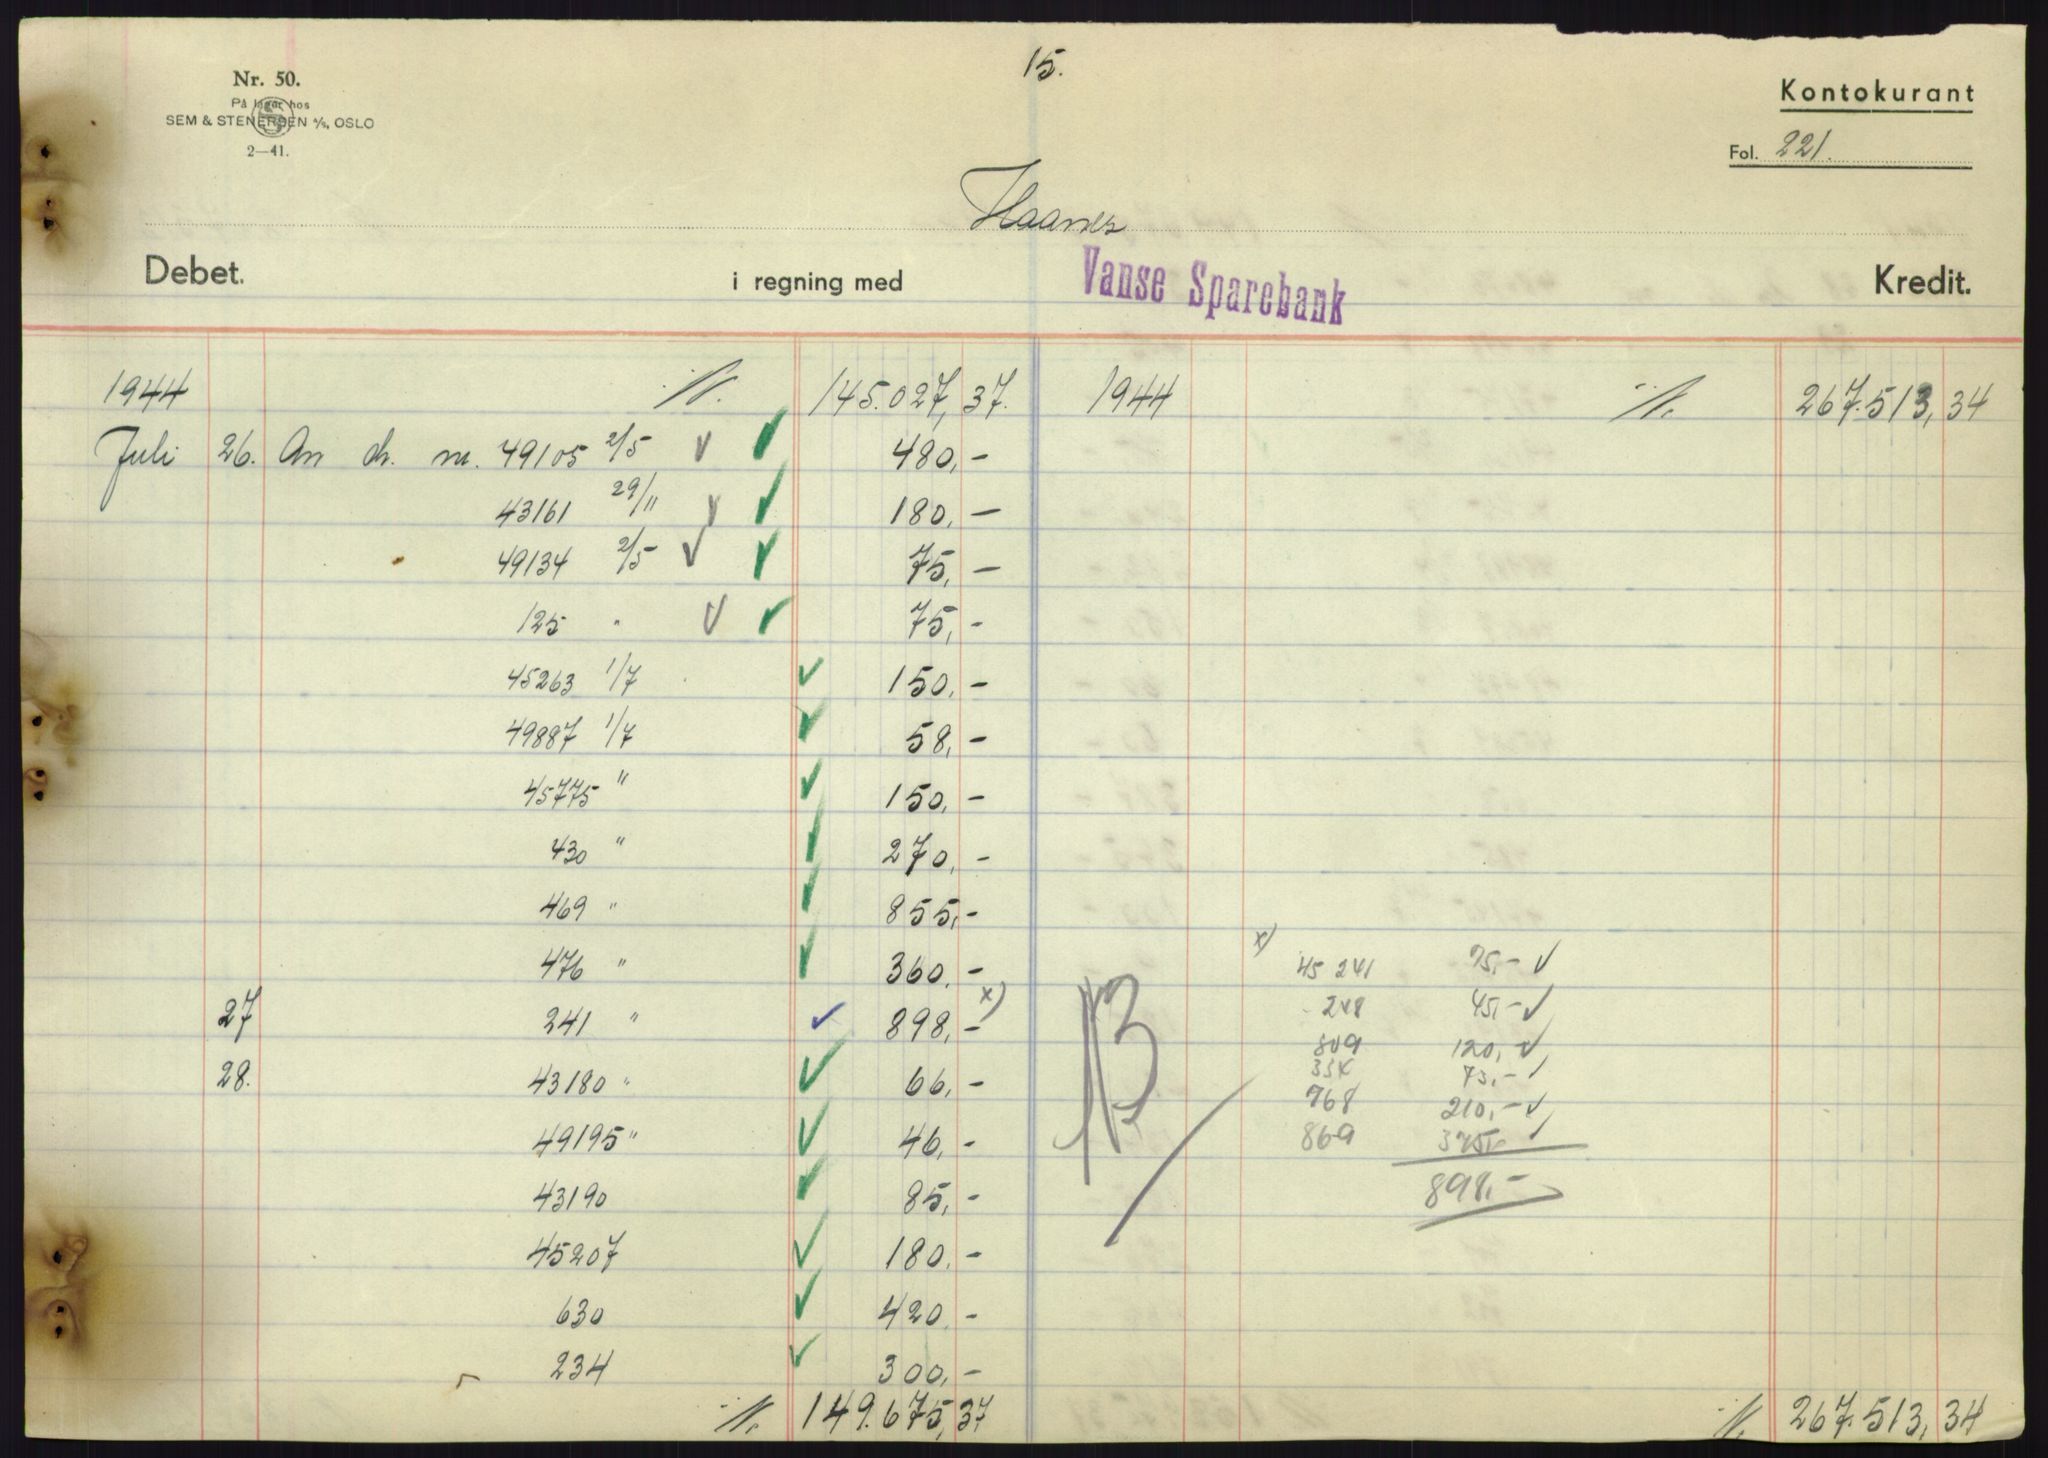 15.
Nr. 50.
På lager hos
SEM & STENERSEN A/S, OSLO
2—41.
Kontokurant
Fol. 221.
Haanes
Debet. i regning med Vanse Sparebank Kredit.
1944 145.027,37. 1944 267.513,34
Juli 26. An ch. nr. 49105 2/5 480,-
43161 29/11 180,-
49134 2/5 75,-
125 " 75,-
45263 1/7 150,-
49887 1/7 58,-
45775 " 150,-
430 " 270,-
469 " 855,-
476 " 360,-
x) 45 241 75,-
27 241 " 898,- x)
248 45,-
809 120,-
28. 43180 " 66,-
334 73,-
768 210,-
49195 " 46,-
869 375,-
43190 85,-
898,-
45207 180,-
630 420,-
234 300,-
149.675,37 267.513,34